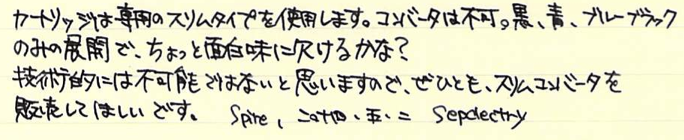 カートリッジは専用のスリムタイプを使用します。コンバータは不可。黒、青、ブルーブラック
のみの展開で、ちょっと面白味に欠けるかな？
技術的には不可能ではないと思いますので、ぜひとも、スリムコンバータを
販売してほしいです。 Spire、